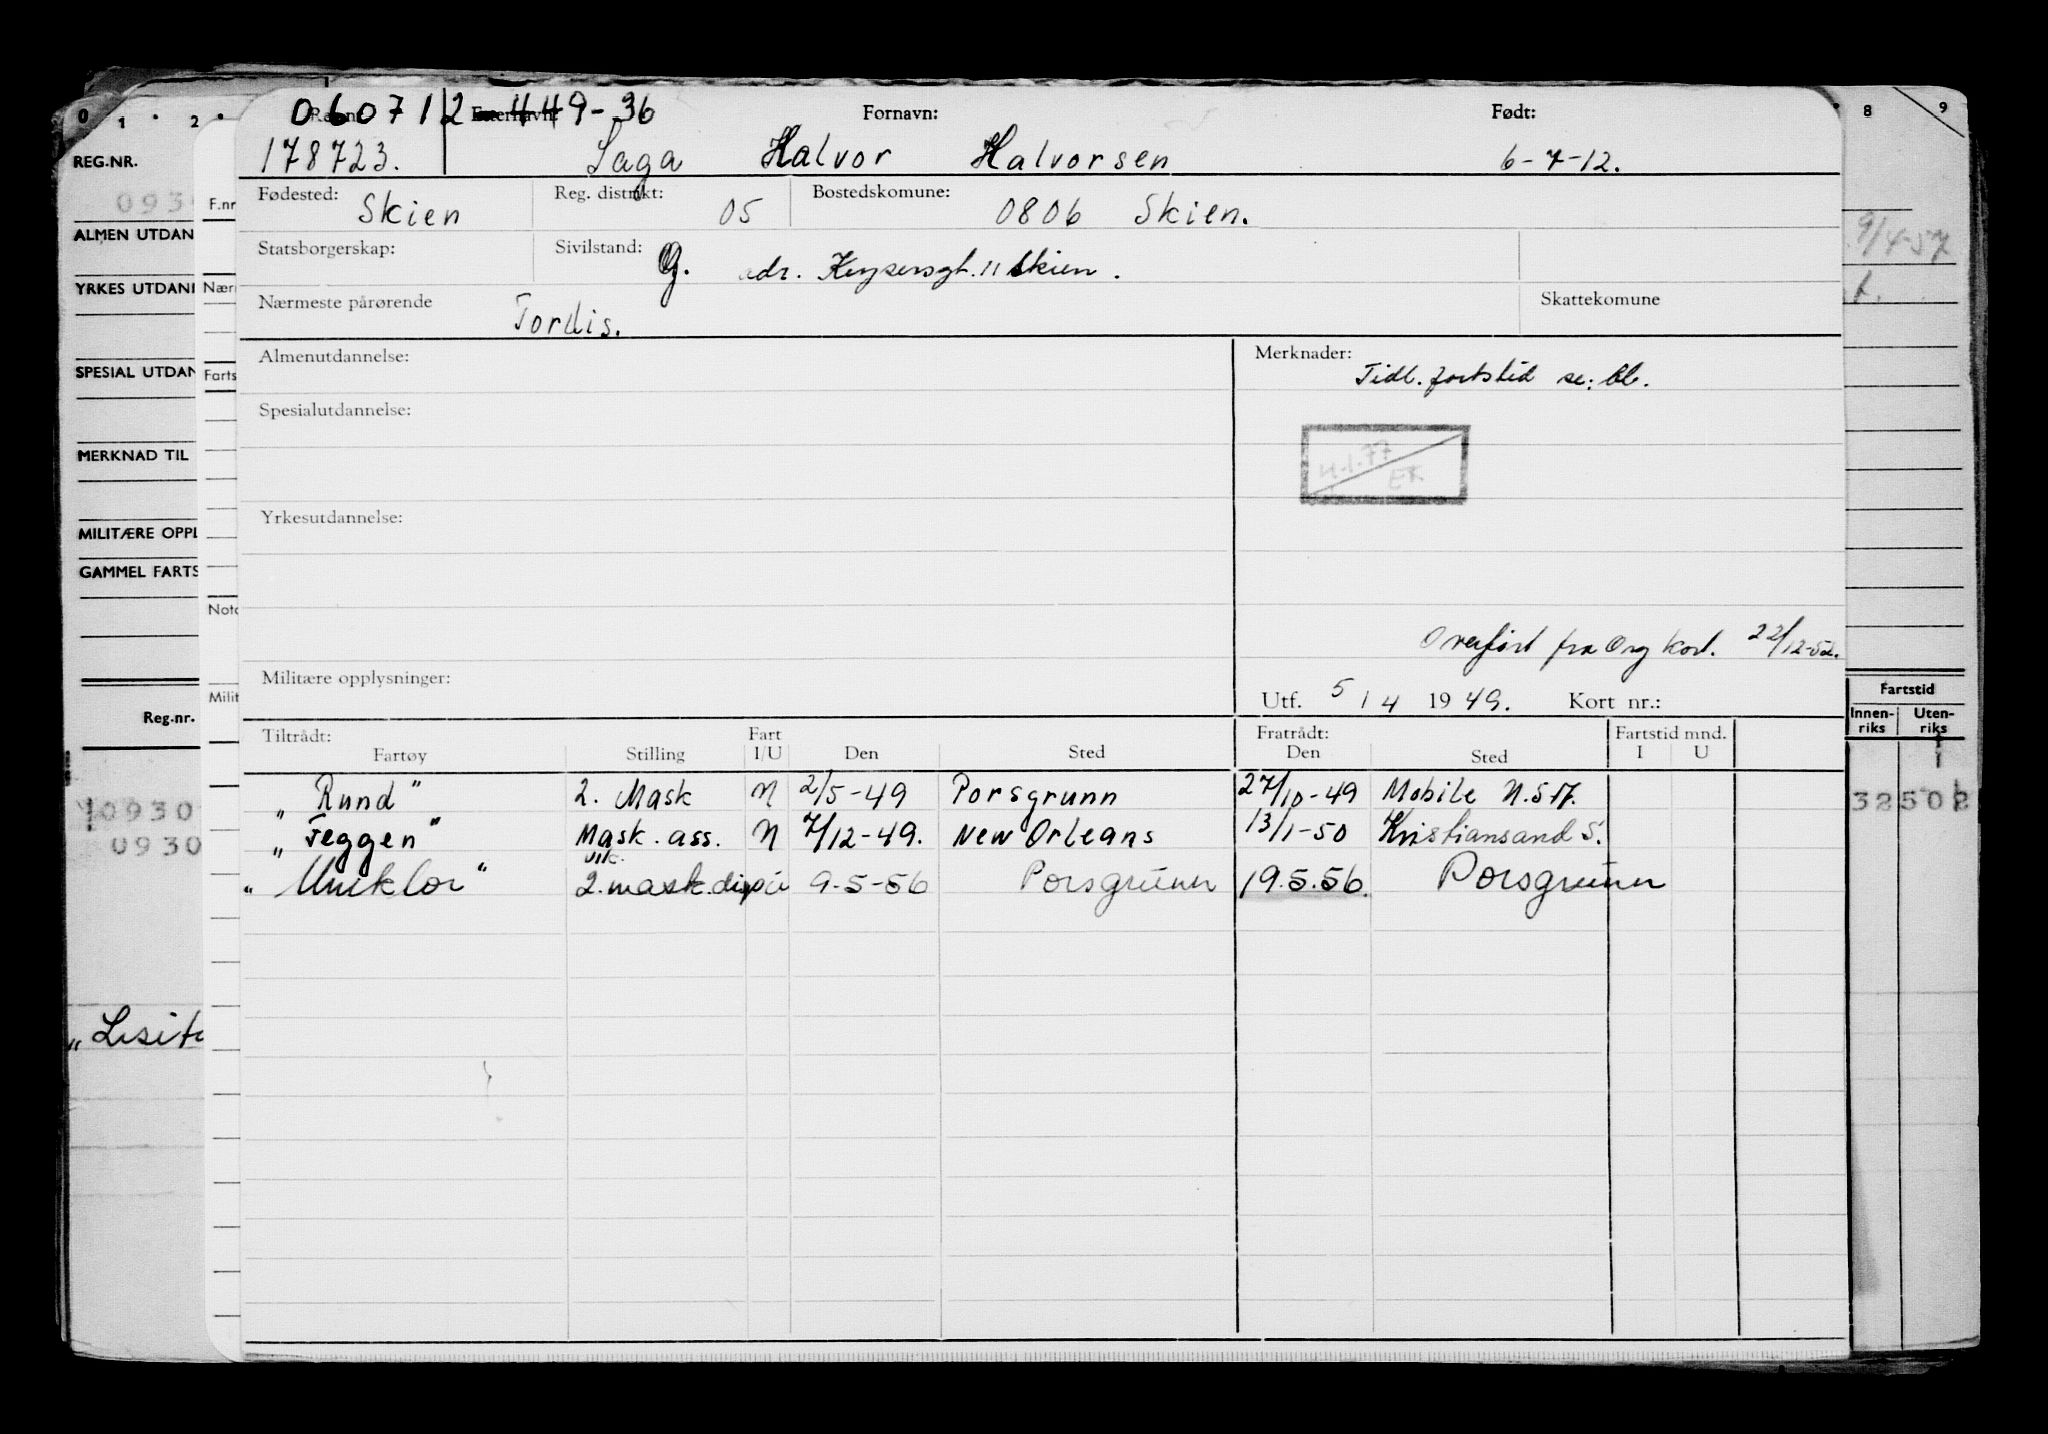 0 1 2 8 9
060712 449-36 Fornavn: Født:
178723. Saga Halvor Halvorsen 6-7-12.
Fødested: Skien Reg. distrikt: 05 Bostedskomune: 0806 Skien.
Statsborgerskap: Sivilstand: G. adr. Keysersgt. 11 Skien.
Nærmeste pårørende Tordis. Skattekomune
Almenutdannelse: Merknader:
Tidl. fartstid se: bl.
Spesialutdannelse:
4.1.77
EK
Yrkesutdannelse:
Overført fra Org kort. 22/12-52.
Militære opplysninger:
Utf. 5/4 1949. Kort nr.:
Tiltrådt: Fart Fratrådt: Fartstid mnd.
Fartøy Stilling I/U Den Sted Den Sted I U
"Rund" 2. Mask N 2/5-49 Porsgrunn 27/10-49 Mobile
"Teggen" Mask. ass. N 7/12-49. New Orleans 13/1-50 Kristiansand S.
vik.
"Uniklor" 2. mask. disp u 9-5-56 Porsgrunn 19.5.56. Porsgrunn
REG.NR.
093
ALMEN UTDAN
YRKES UTDAN
SPESIAL UTDAN
MERKNAD TIL
MILITÆRE OPPL
GAMMEL FARTS
Reg.nr.
0930
0930
"Lisit
F.nr
Nærn
Farts
Nota
Milit
9/4-57
Fartstid
Innen-
riks Uten-
riks
32502